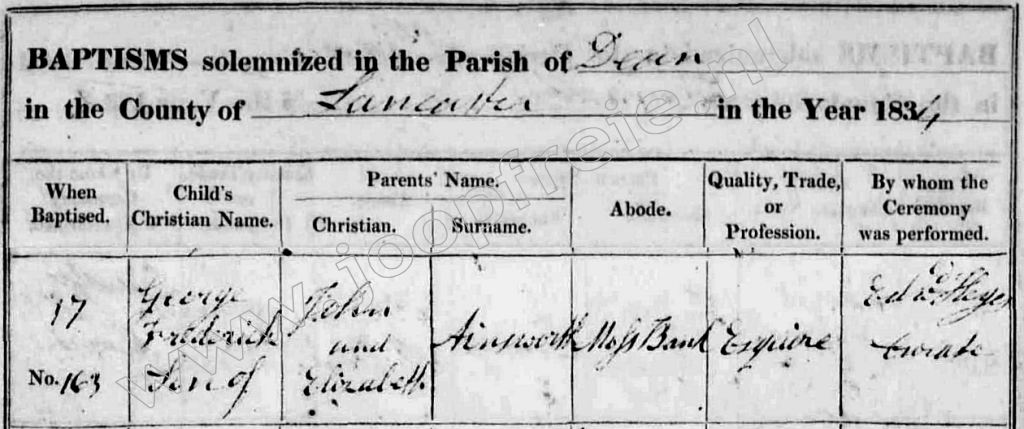 BAPTISMS solemnized in the Parish of Dean
in the County of Lancaster in the Year 1834
When Baptised.
Child's Christian Name.
Parents' Name.
Christian.
Surname.
Abode.
Quality, Trade, or Profession.
By whom the Ceremony was performed.
17
No. 163
George
Frederick
Son of
John
and
Elizabeth
Ainsworth
Moss Bank
Esquire
Edwd
Curate
www.joopfreie.nl